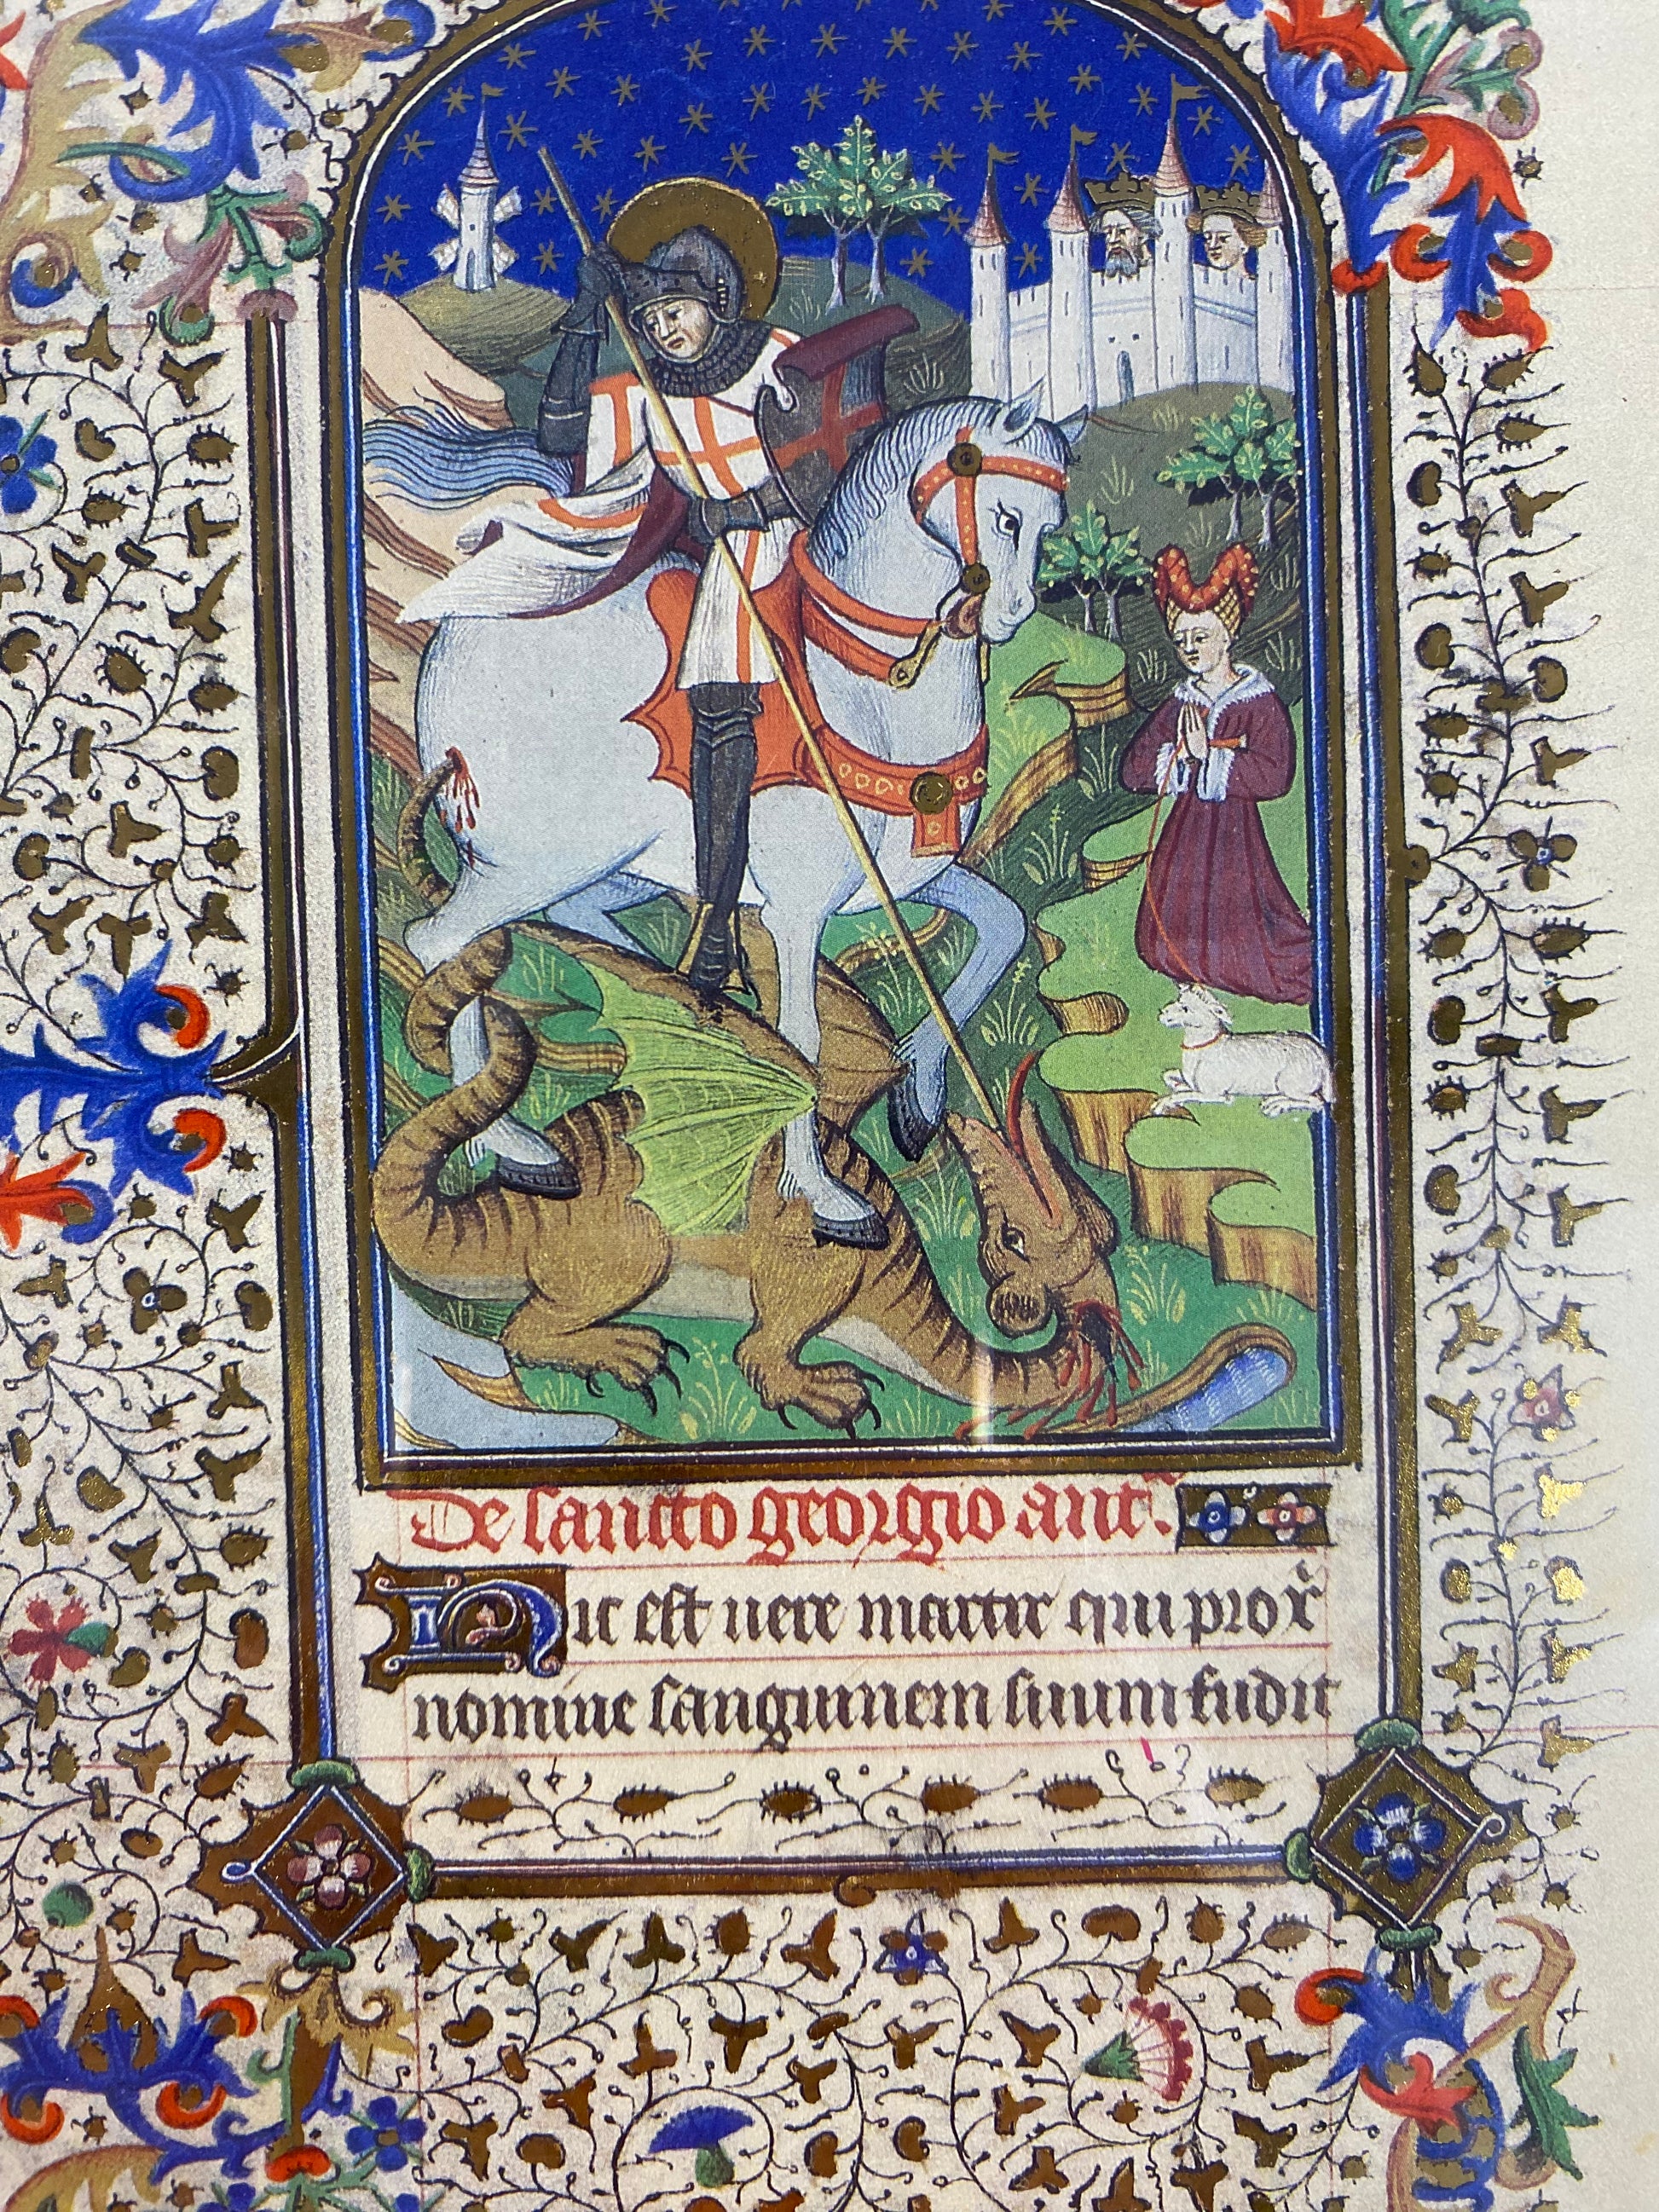 De sancto georgio ant.
Hic est vere martir qui pro x̄
nomine sanguinem suum fudit